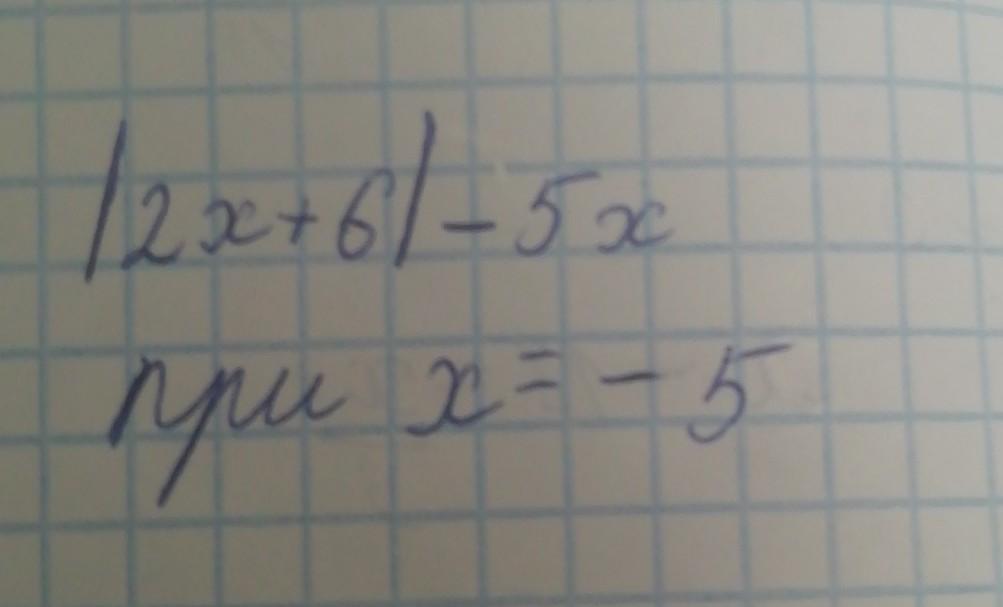 |2x+6|-5x
при x=-5